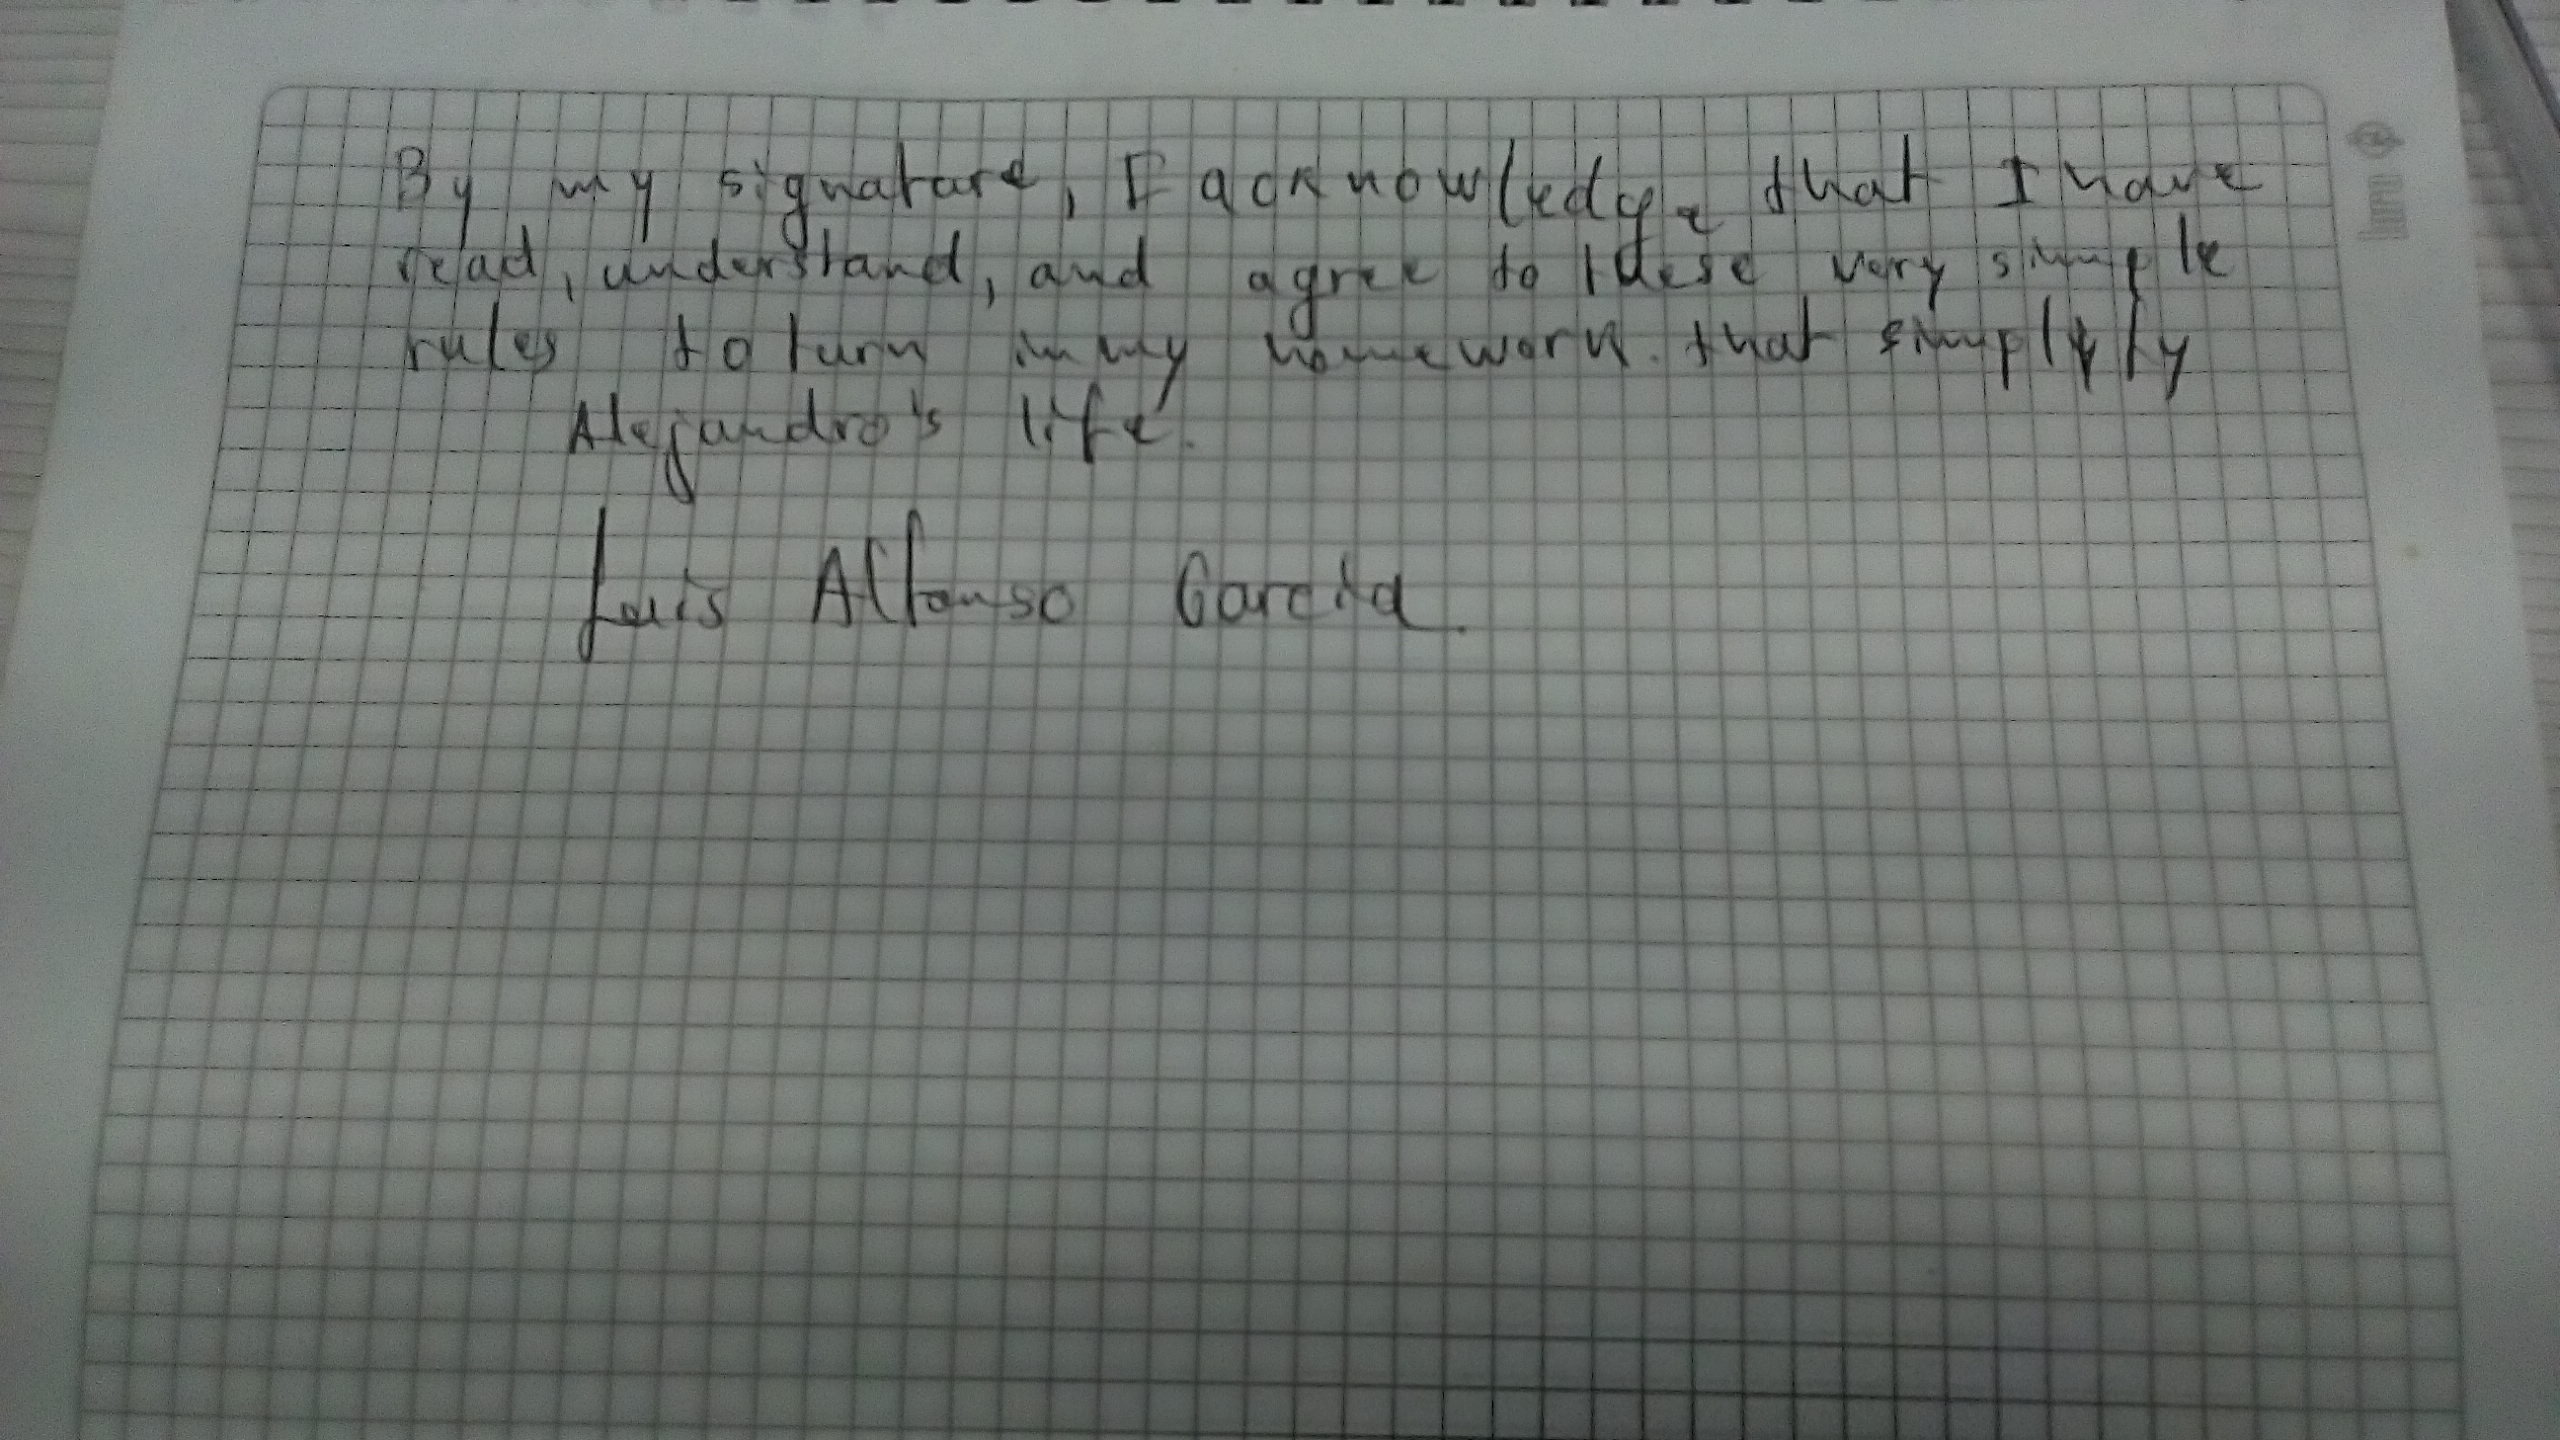 By my signature, I acknowledge that I have
read, understand, and agree to these very simple
rules to turn in my homework. that simplify
Alejandro's life.
Luis Alfonso Garcia.